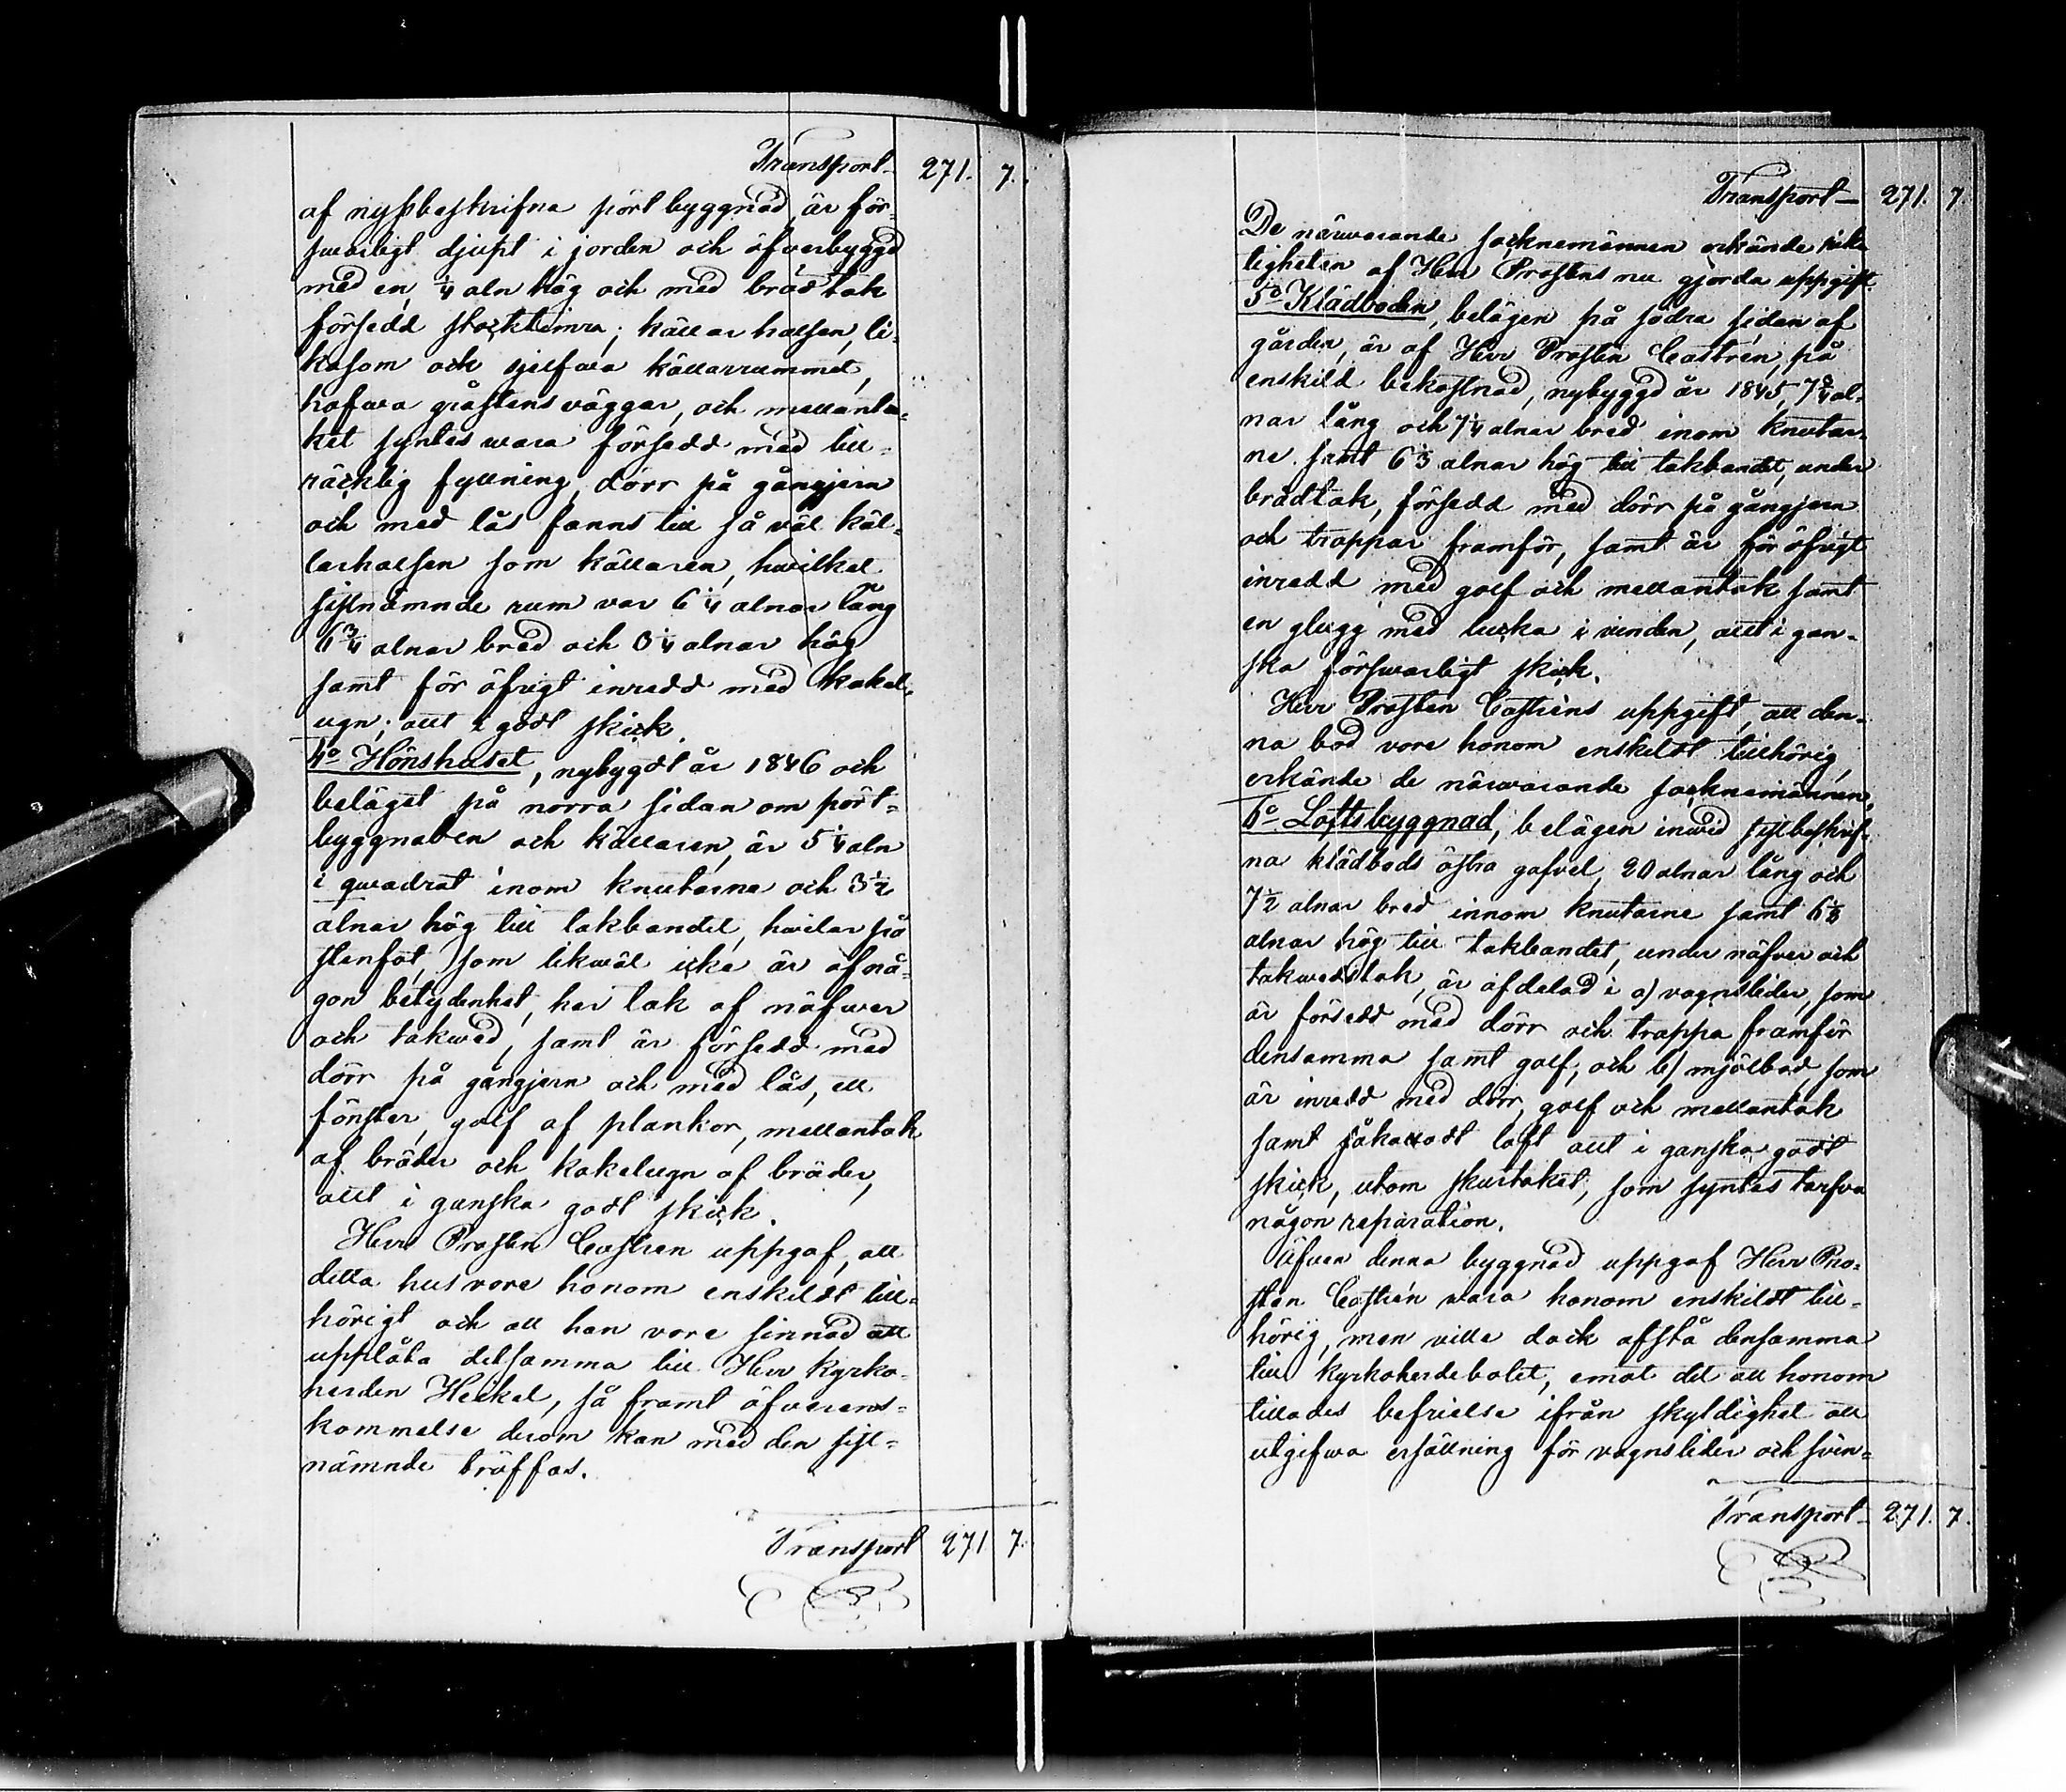 Transport 271. 7.
af nyssbeskrifna pörtbyggnad, är för-
svarligt djupt i jorden och öfverbyggd
med en, ¼ aln hög och med brädtak
försedd stocktimra; källarhalsen, li-
kasom ock sjelfva källarrummet,
hafwa gråstensväggar, och mellanta-
ket syntes wara försedd med till-
räcklig fyllning, dörr på gångjern
och med lås fanns till så väl käl-
larhalsen som källaren, hwilket
sistnämnde rum var 6¼ alnar lång
6¾ alnar bred och 3¼ alnar hög
samt för öfrigt inredd med kakel-
ugn; allt i godt skick.
4o Hönshuset, nybygdt år 1846 och
beläget på norra sidan om pört-
byggnaden och källaren, är 5¼ aln
i quadrat inom knutarna och 3½
alnar hög till takbandet, hwilar på
stenfot, som likwäl icke är af nå-
gon betydenhet, har tak af näfwer
och takwed, samt är försedd med
dörr på gångjern och med lås, ett
fönster, golf af plankor, mellantak
af bräder och kakelugn af bräder,
allt i ganska godt skick.
Herr Prosten Castrén uppgaf, att
detta hus vore honom enskildt till-
hörigt och att han vore sinnad att
upplåta detsamma till Herr Kyrko-
herden Heikel, så framt öfverens-
kommelse derom kan med den sist-
nämnde träffas.
Transport 271 7.
Transport 271. 7.
De närwarande socknemännen erkände rik-
tigheten af Herr Prostens nu gjorda uppgift.
5o Klädboden, belägen på södra sidan af
gården, är af Herr Prosten Castrén, på
enskild bekostnad, nybyggd år 1845, 7¾ al-
nar lång och 7¼ alnar bred inom knutar-
ne samt 6⅓ alnar hög till takbandet, under
brädtak, försedd med dörr på gångjern
och trappar framför, samt är för öfrigt
inredd med golf och mellantak samt
en glugg med lucka i vinden, allt i gan-
ska förswarligt skick.
Herr Prosten Castréns uppgift, att den-
na bod vore honom enskildt tillhörig,
erkände de närwarande socknemännen.
6o Loftsbyggnad, belägen inwid sistbeskrif-
na klädbods östra gafvel, 20 alnar lång och
7½ alnar bred innom knutarne samt 6⅓
alnar hög till takbandet, under näfver och
takwedstak, är afdelad i a) vagnslider, som
är försedd med dörr och trappa framför
densamma samt golf; och b) mjölbod, som
är inredd med dörr, golf och mellantak
samt såkalladt loft allt i ganska godt
skick, utom skurtaket, som syntes tarfva
någon reparation.
Äfven denna byggnad uppgaf Herr Pro-
sten Castrén vara honom enskildt till-
hörig, men ville dock afstå densamma
till kyrkoherdebolet, emot det att honom
tillades befrielse ifrån skyldighet att
utgifwa ersättning för vagnslider och svin-
Transport 271. 7.